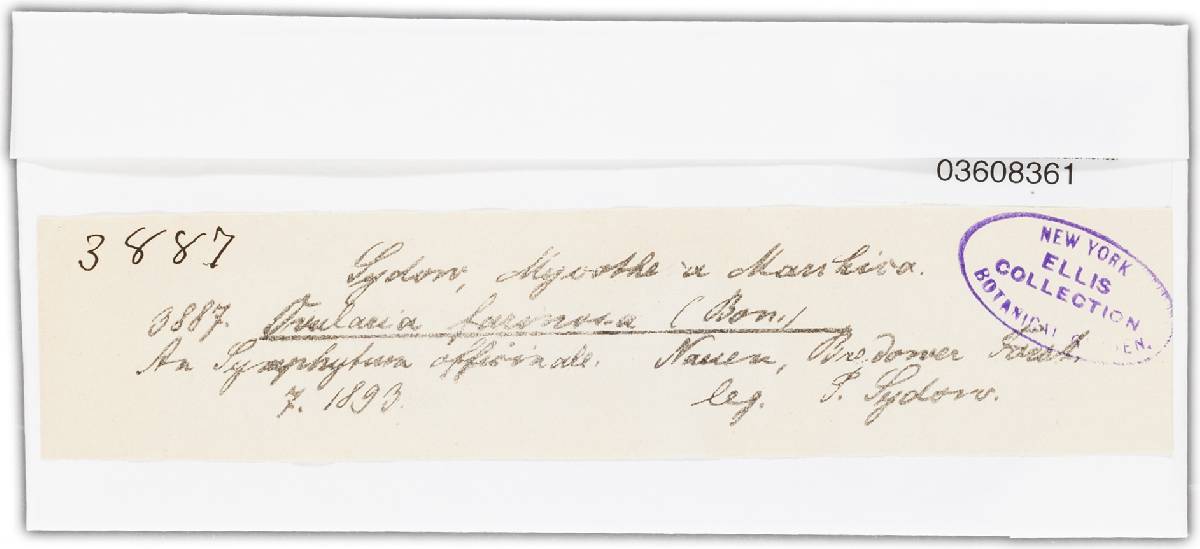 03608361
3887
Sydow, Mycothe a Marchica.
3887. Ovularia farinosa (Bon.)
An Symphytum officinale. Nauen, Bredower Forst.
7. 1893. leg. P. Sydow.
NEW YORK
ELLIS
COLLECTION
BOTANICAL GARDEN.